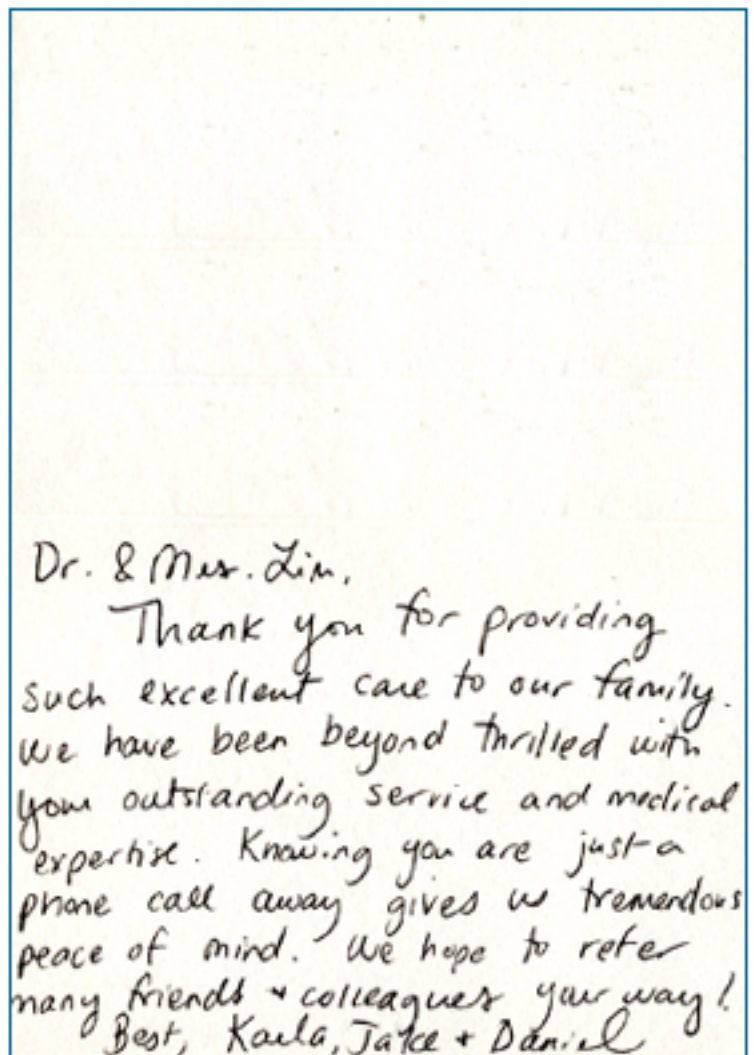 Dr. & Mrs. Lim,
Thank you for providing
such excellent care to our family.
We have been beyond thrilled with
your outstanding service and medical
expertise. Knowing you are just a
phone call away gives us tremendous
peace of mind. We hope to refer
many friends + colleagues your way!
Best, Kaela, Jake + Daniel